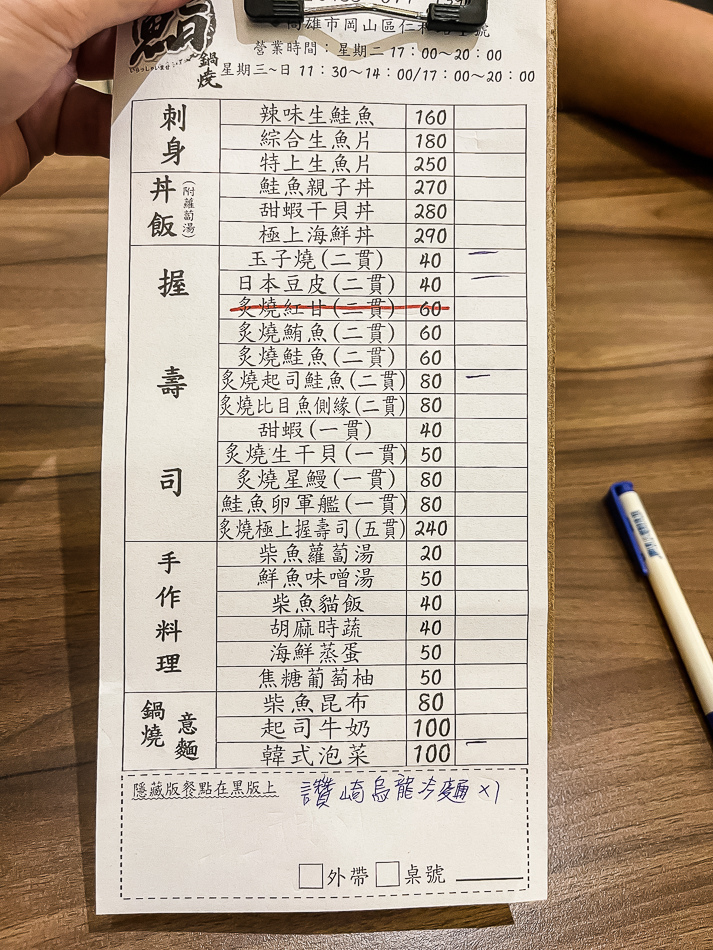 鍋燒
高雄市岡山區仁
號
營業時間：星期二 17：00～20：00
星期三~日 11：30～14：00/17：00～20：00
刺身
辣味生鮭魚 160
綜合生魚片 180
特上生魚片 250
丼飯 (附蘿蔔湯)
鮭魚親子丼 270
甜蝦干貝丼 280
極上海鮮丼 290
握壽司
玉子燒(二貫) 40 一
日本豆皮(二貫) 40 一
炙燒紅甘(二貫) 60
炙燒鮪魚(二貫) 60
炙燒鮭魚(二貫) 60
炙燒起司鮭魚(二貫) 80 一
炙燒比目魚側緣(二貫) 80
甜蝦(一貫) 40
炙燒生干貝(一貫) 50
炙燒星鰻(一貫) 80
鮭魚卵軍艦(一貫) 80
炙燒極上握壽司(五貫) 240
手作料理
柴魚蘿蔔湯 20
鮮魚味噌湯 50
柴魚貓飯 40
胡麻時蔬 40
海鮮蒸蛋 50
焦糖葡萄柚 50
鍋燒意麵
柴魚昆布 80
起司牛奶 100
韓式泡菜 100 一
隱藏版餐點在黑版上 讚崎烏龍冷麵 x1
外帶 桌號